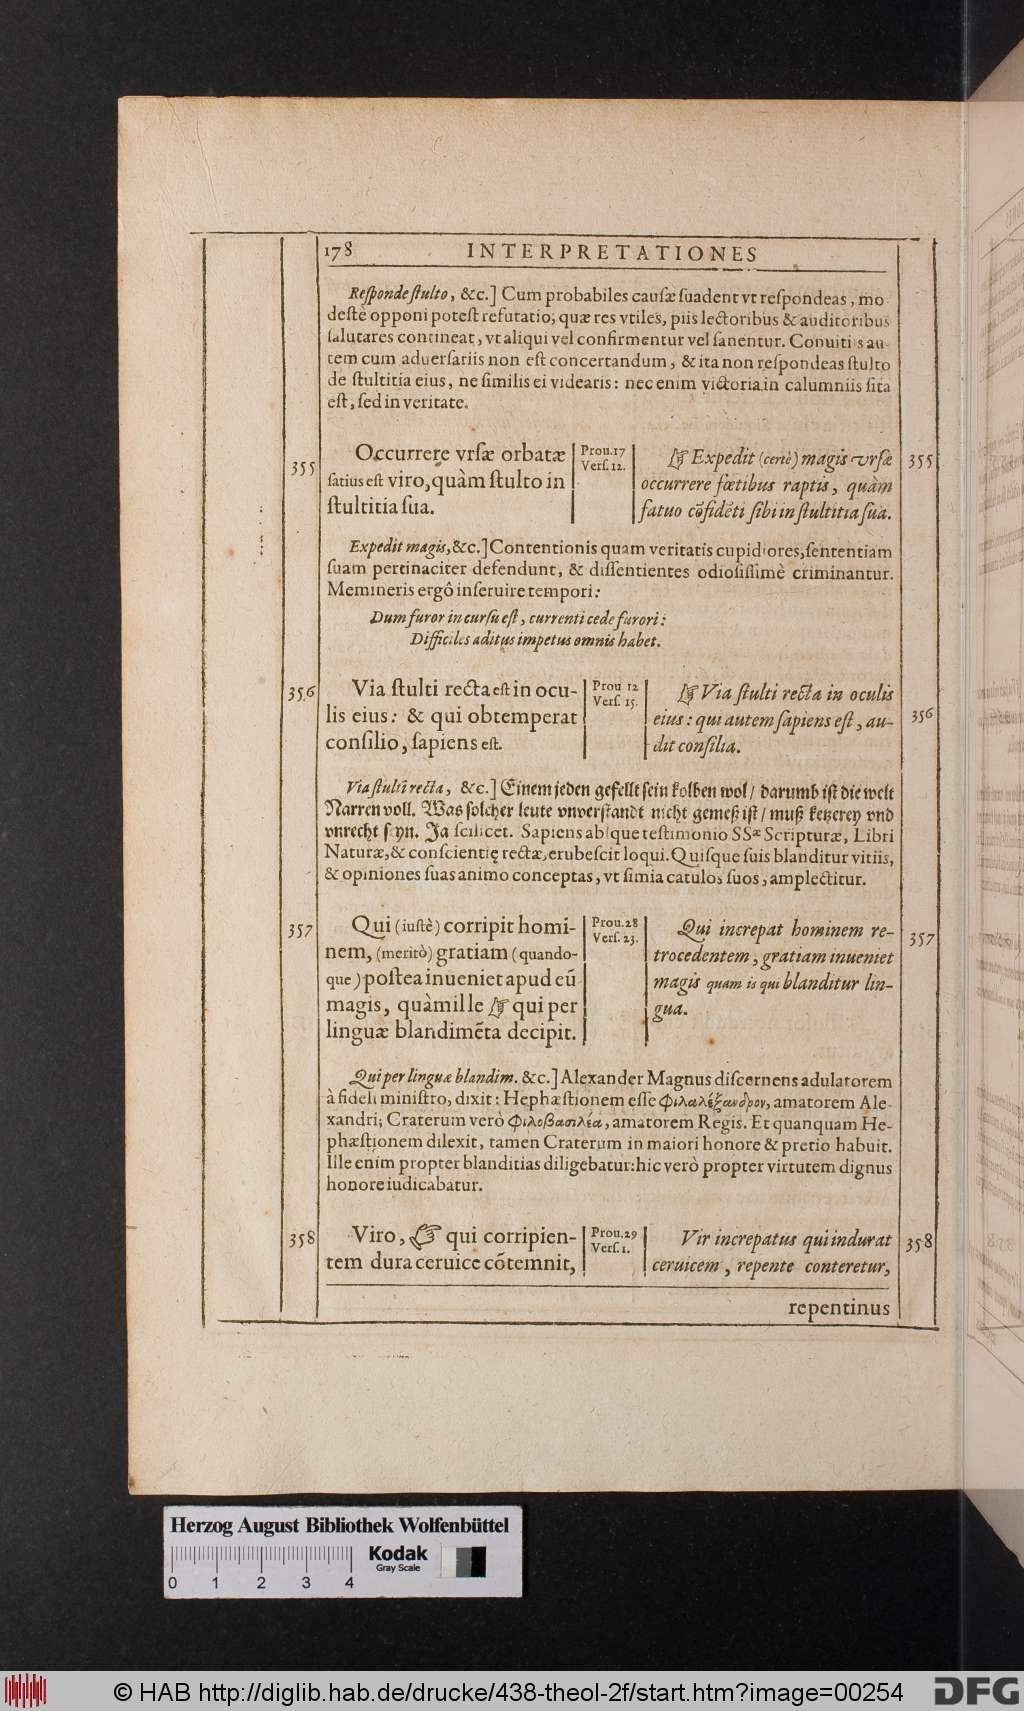 178 INTERPRETATIONES
Respondeſtulto, &c.] Cum probabiles cauſæ ſuadent vt reſpondeas, mo
deſtè opponi poteſt refutatio; quæ res vtiles, piis lectoribus & auditoribus
ſalutares contineat, vt aliqui vel confirmentur vel ſanentur. Conuitiis au-
tem cum aduerſariis non eſt concertandum, & ita non reſpondeas ſtulto
de ſtultitia eius, ne ſimilis ei videaris: nec enim victoria in calumniis ſita
eſt, ſed in veritate.
355
Occurrere vrſæ orbatæ
ſatius eſt viro, quàm ſtulto in
ſtultitia ſua.
Prou.17
Verſ. 12.
☞ Expedit (certè) magis vrſæ
occurrere fœtibus raptis, quàm
fatuo cõfidẽti ſibi in ſtultitia ſua.
355
Expedit magis, &c.] Contentionis quam veritatis cupidiores, ſententiam
ſuam pertinaciter defendunt, & diſſentientes odioſiſſimè criminantur.
Memineris ergô inſeruire tempori:
Dum furor in curſu eſt, currenti cede furori:
Difficiles aditus impetus omnis habet.
356
Via ſtulti recta eſt in ocu-
lis eius: & qui obtemperat
conſilio, ſapiens eſt.
Prou 12
Verſ. 15.
☞ Via ſtulti recta in oculis
eius: qui autem ſapiens eſt, au-
dit conſilia.
356
Via ſtulti recta, &c.] Einem jeden gefellt ſein kolben wol / darumb iſt die welt
Narren voll. Was ſolcher leute vnverſtandt nicht gemeß iſt / muß ketzerey vnd
vnrecht ſeyn. Ja ſcilicet. Sapiens abſque teſtimonio SSæ Scripturæ, Libri
Naturæ, & conſcientię rectæ, erubeſcit loqui. Quiſque ſuis blanditur vitiis,
& opiniones ſuas animo conceptas, vt ſimia catulos ſuos, amplectitur.
357
Qui (iuſtè) corripit homi-
nem, (meritò) gratiam (quando-
que) poſtea inueniet apud eũ
magis, quàm ille ☞ qui per
linguæ blandimẽta decipit.
Prou.28
Verſ. 23.
Qui increpat hominem re-
trocedentem, gratiam inueniet
magis quam is qui blanditur lin-
gua.
357
Qui per linguæ blandim. &c.] Alexander Magnus diſcernens adulatorem
à fideli miniſtro, dixit: Hephæſtionem eſſe φιλαλέξανδρον, amatorem Ale-
xandri; Craterum verò φιλοβασιλέα, amatorem Regis. Et quanquam He-
phæſtionem dilexit, tamen Craterum in maiori honore & pretio habuit.
Ille enim propter blanditias diligebatur: hic verò propter virtutem dignus
honore iudicabatur.
358
Viro, ☞ qui corripien-
tem dura ceruice cõtemnit,
Prou.29
Verſ. 1.
Vir increpatus qui indurat
ceruicem, repente conteretur,
358
repentinus
Herzog August Bibliothek Wolfenbüttel
Kodak
Gray Scale
0 1 2 3 4
© HAB http://diglib.hab.de/drucke/438-theol-2f/start.htm?image=00254
DFG